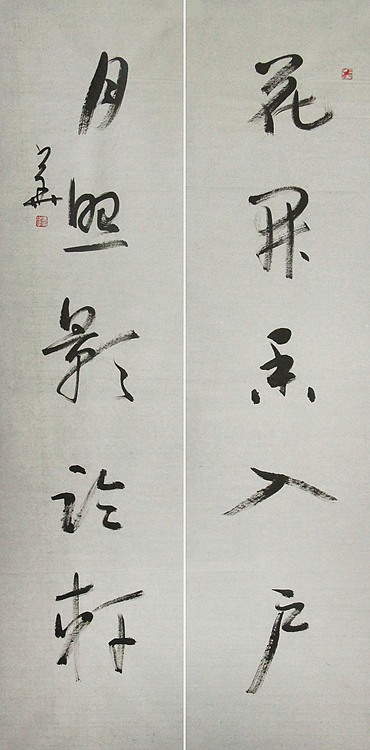 花開香入户
月照影臨軒